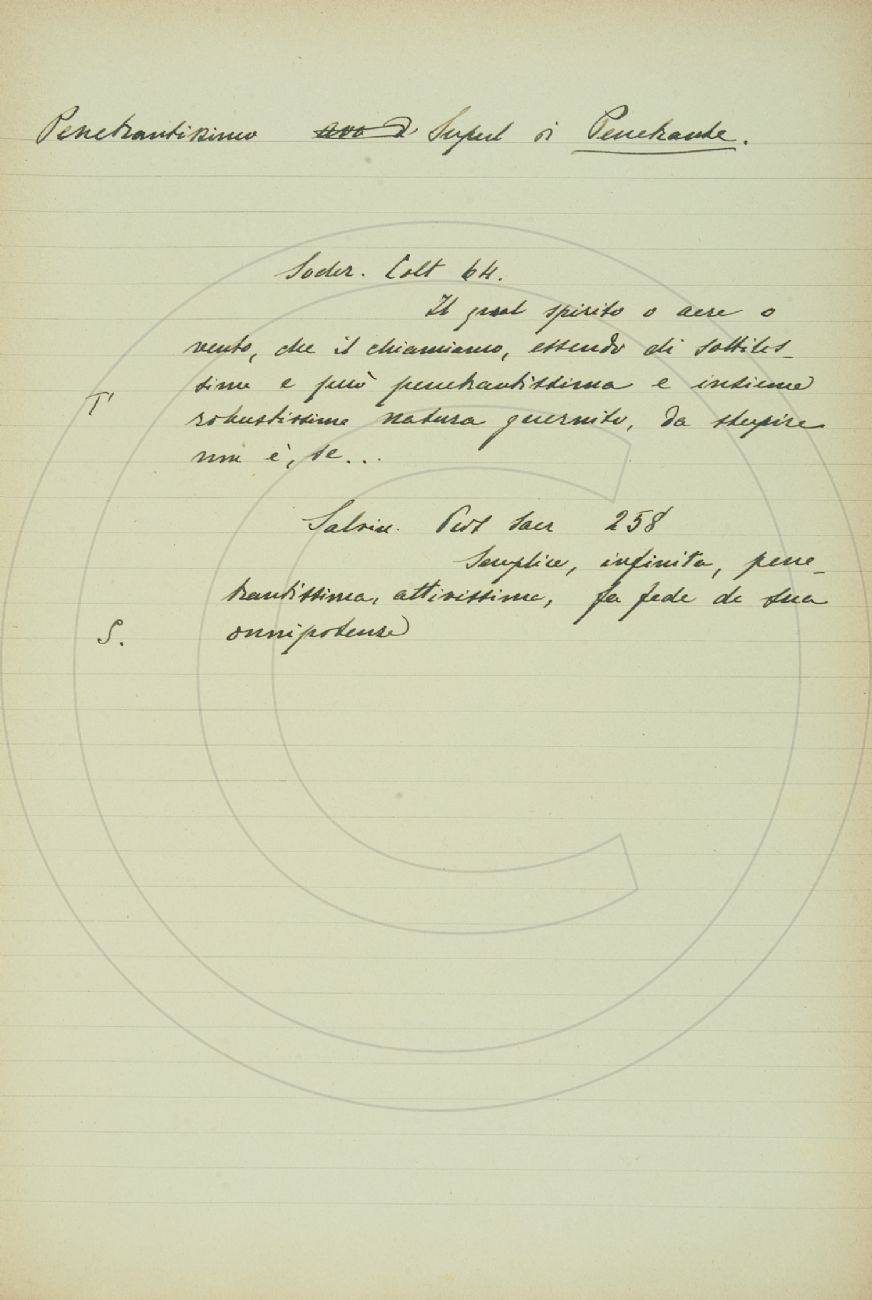 Penetrantissimo Superl di Penetrante.
Soder. Colt 64.
Il qual spirito o aere o
vento, che il chiamiamo, essendo di sottilis-
sima e però penetrantissima e insieme
T' robustissima natura guernito, da stupire
non è, se...
Salvin. Pros sacr 258
Semplice, infinita, pene-
trantissima, attivissima, fa fede di sua
S. onnipotenza